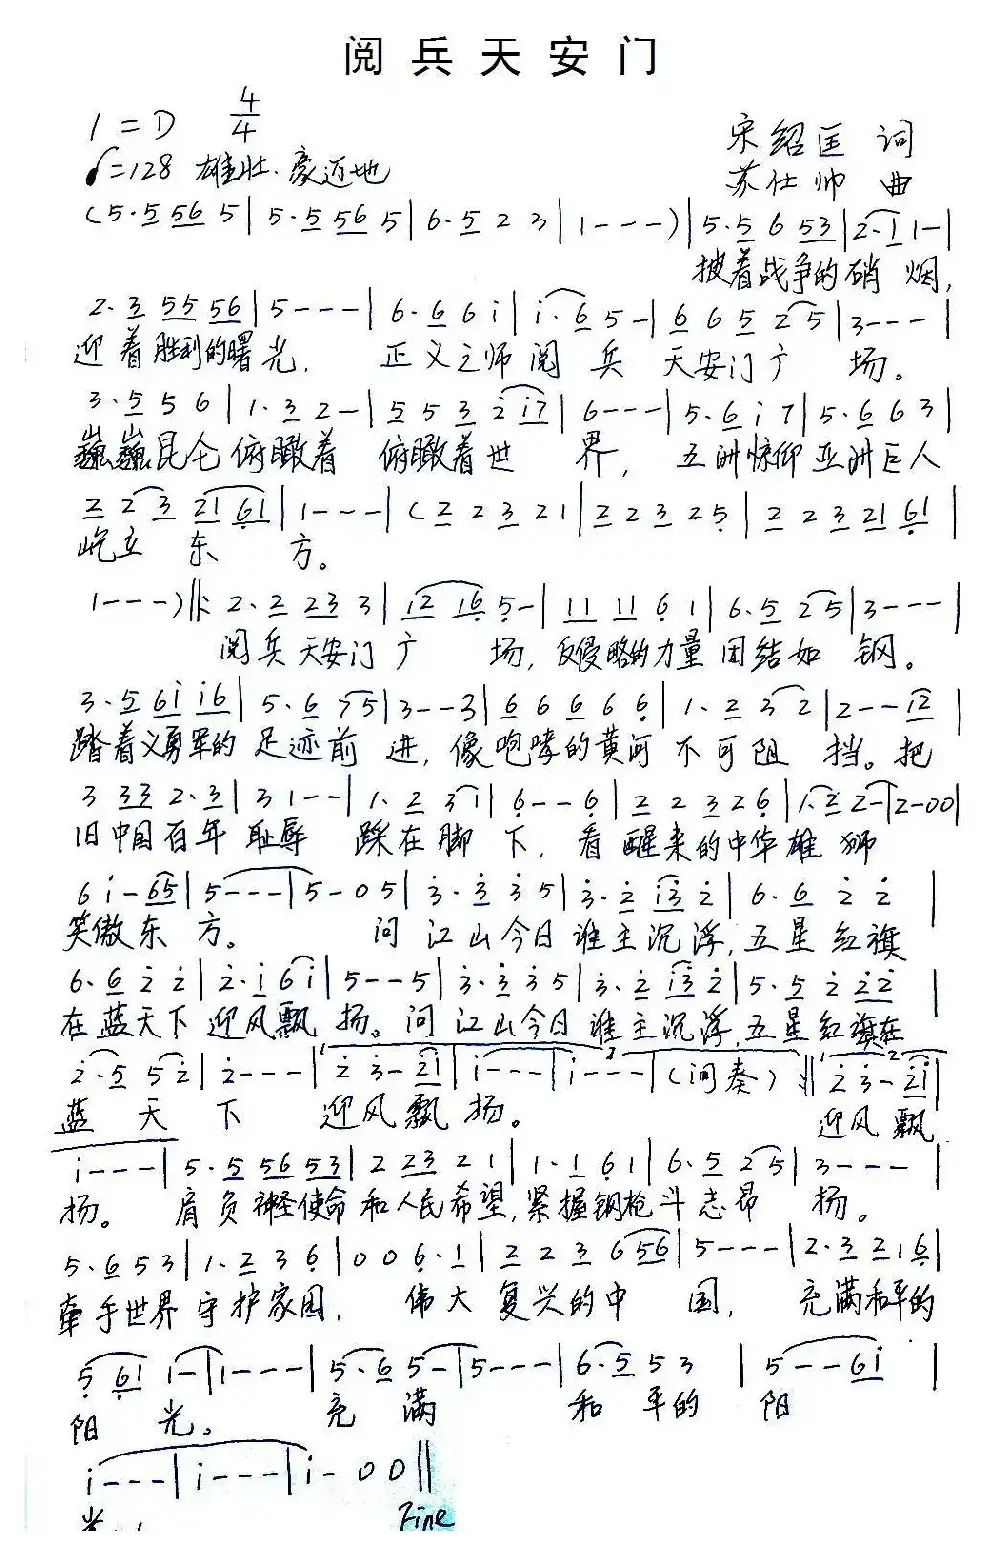 阅兵天安门
1=D 4/4
♩=128 雄壮.豪迈地
宋绍匡 词
苏仕帅 曲
(5·5 56 5|5·5 56 5|6·5 2 3|1---)|5·5 6 53|2·1 1-|
披着战争的硝烟,
2·3 55 56|5---|6·6 6 i|i·6 5-|6 6 5 2 5|3---|
迎着胜利的曙光, 正义之师阅兵 天安门广 场。
3·5 5 6|1·3 2-|5 5 3 2 i7|6---|5·6 i 7|5·6 6 3|
巍巍昆仑俯瞰着 俯瞰着世 界, 五洲惊仰亚洲巨人
2 2 3 21 61|1---|(2 2 3 2 1|2 2 3 2 5|2 2 3 21 61|
屹立 东 方。
1---)‖: 2·2 23 3|i2 16 5-|11 11 6 1|6·5 2 5|3---|
阅兵天安门广 场, 反侵略的力量团结如 钢。
3·5 6i i6|5·6 7 5|3--3|6 6 6 6 6|1·2 3 2|2--i2|
踏着义勇军的 足迹前 进, 像咆哮的黄河 不可阻 挡。把
3 33 2·3|3 1--|1·2 3 1|6--6|2 2 3 2 6|1·2 2-|2-00|
旧中国百年 耻辱 踩在脚 下, 看 醒来的中华雄 狮
6 i-65|5---|5-05|3·3 3 5|3·2 i3 2|6·6 2 2|
笑傲东 方。 问 江山今日 谁主沉浮,五星红旗
6·6 2 2|2·i 6 i|5--5|3·3 3 5|3·2 i3 2|5·5 2 22|
在蓝天下 迎风飘 扬。问 江山今日 谁主沉浮,五星红旗在
2·5 5 2|2---|2 3-2i|i---|i---|(间奏):‖2 3-2i|
蓝 天 下 迎风飘 扬。 迎风飘
i---|5·5 56 53|2 23 2 1|1·1 6 1|6·5 2 5|3---|
扬。 肩负神圣使命 和人民希望,紧握钢枪斗志昂 扬。
5·6 5 3|1·2 3 6|0 0 6·1|2 2 3 6 56|5---|2·3 2 1 6|
牵手世界 守护家园, 伟大 复兴的中 国, 充满和平的
5 61 1-|1---|5·6 5-|5---|6·5 5 3|5--6i|
阳 光。 充 满 和平的 阳
i---|i---|i-00‖
光
Fine